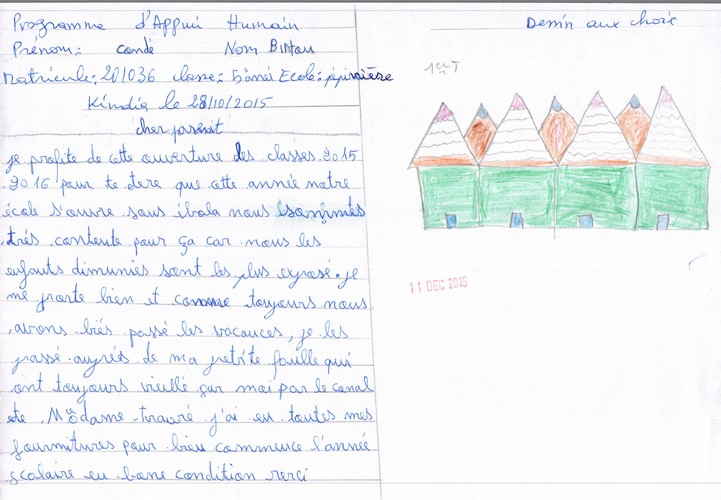 Programme d'Appui Humain
Prénom: condé Nom Bintou
Matricule: 201036 classe: 5ème Ecole: pépinière
Kindia le 28/10/2015
cher parent
je profite de cette ouverture des classes 2015
2016 pour te dere que cette année notre
école s'ouvre sous ibola nous sommes
très contente pour ça car nous les
enfants dimunies sont les plus exposé. je
me porte bien et comme toujours nous
avons biés passé les vacances, je les
passé auprés de ma petite faville qui
ont toujours vieillé sur moi par le canal
de Madame traoré j'ai eu toutes mes
fournitures pour bien commence l'année
scolaire en bone condition
Dessin aux choix
1er T
11 DEC 2015